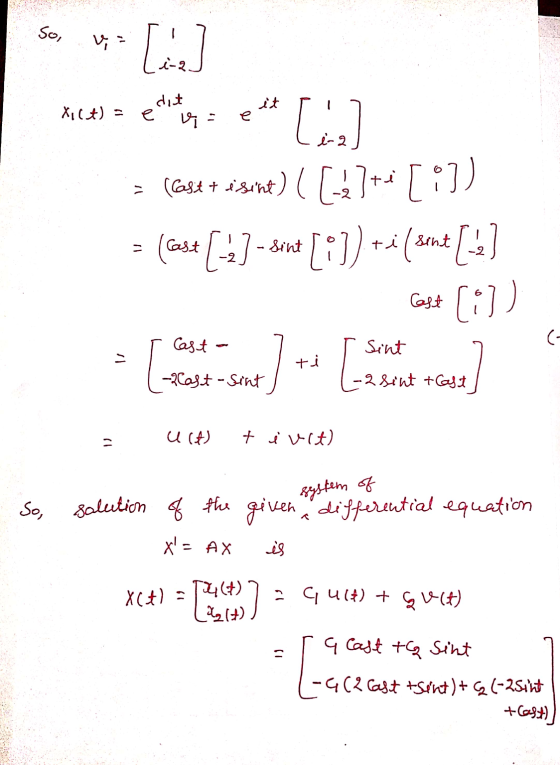 So, v₁ = [ 1 ; i-2 ]
x₁(t) = e^{d₁t} v₁ = e^{it} [ 1 ; i-2 ]
= (Cost + i sint) ( [ 1 ; -2 ] + i [ 0 ; 1 ] )
= (Cost [ 1 ; -2 ] - sint [ 0 ; 1 ]) + i ( sint [ 1 ; -2 ]
Cost [ 0 ; 1 ] )
= [ Cost - ; -2Cost - Sint ] + i [ Sint ; -2 sint + Cost ]
= u(t) + i v(t)
So, solution of the given system of differential equation
X' = AX is
X(t) = [ x₁(t) ; x₂(t) ] = C₁ u(t) + C₂ v(t)
= [ C₁ Cost + C₂ Sint ; -C₁ (2 Cost + Sint) + C₂ (-2Sint + Cost) ]